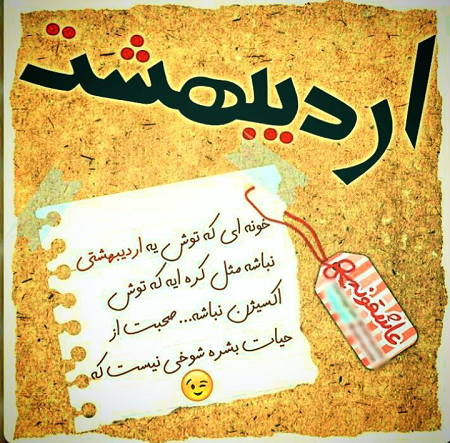 اردیبهشت
خونه ای که توش یه اردیبهشتی
نباشه مثل کره ایه که توش
اکسیژن نباشه... صحبت از
حیات بشره شوخی نیست که
😉
عاشقونه